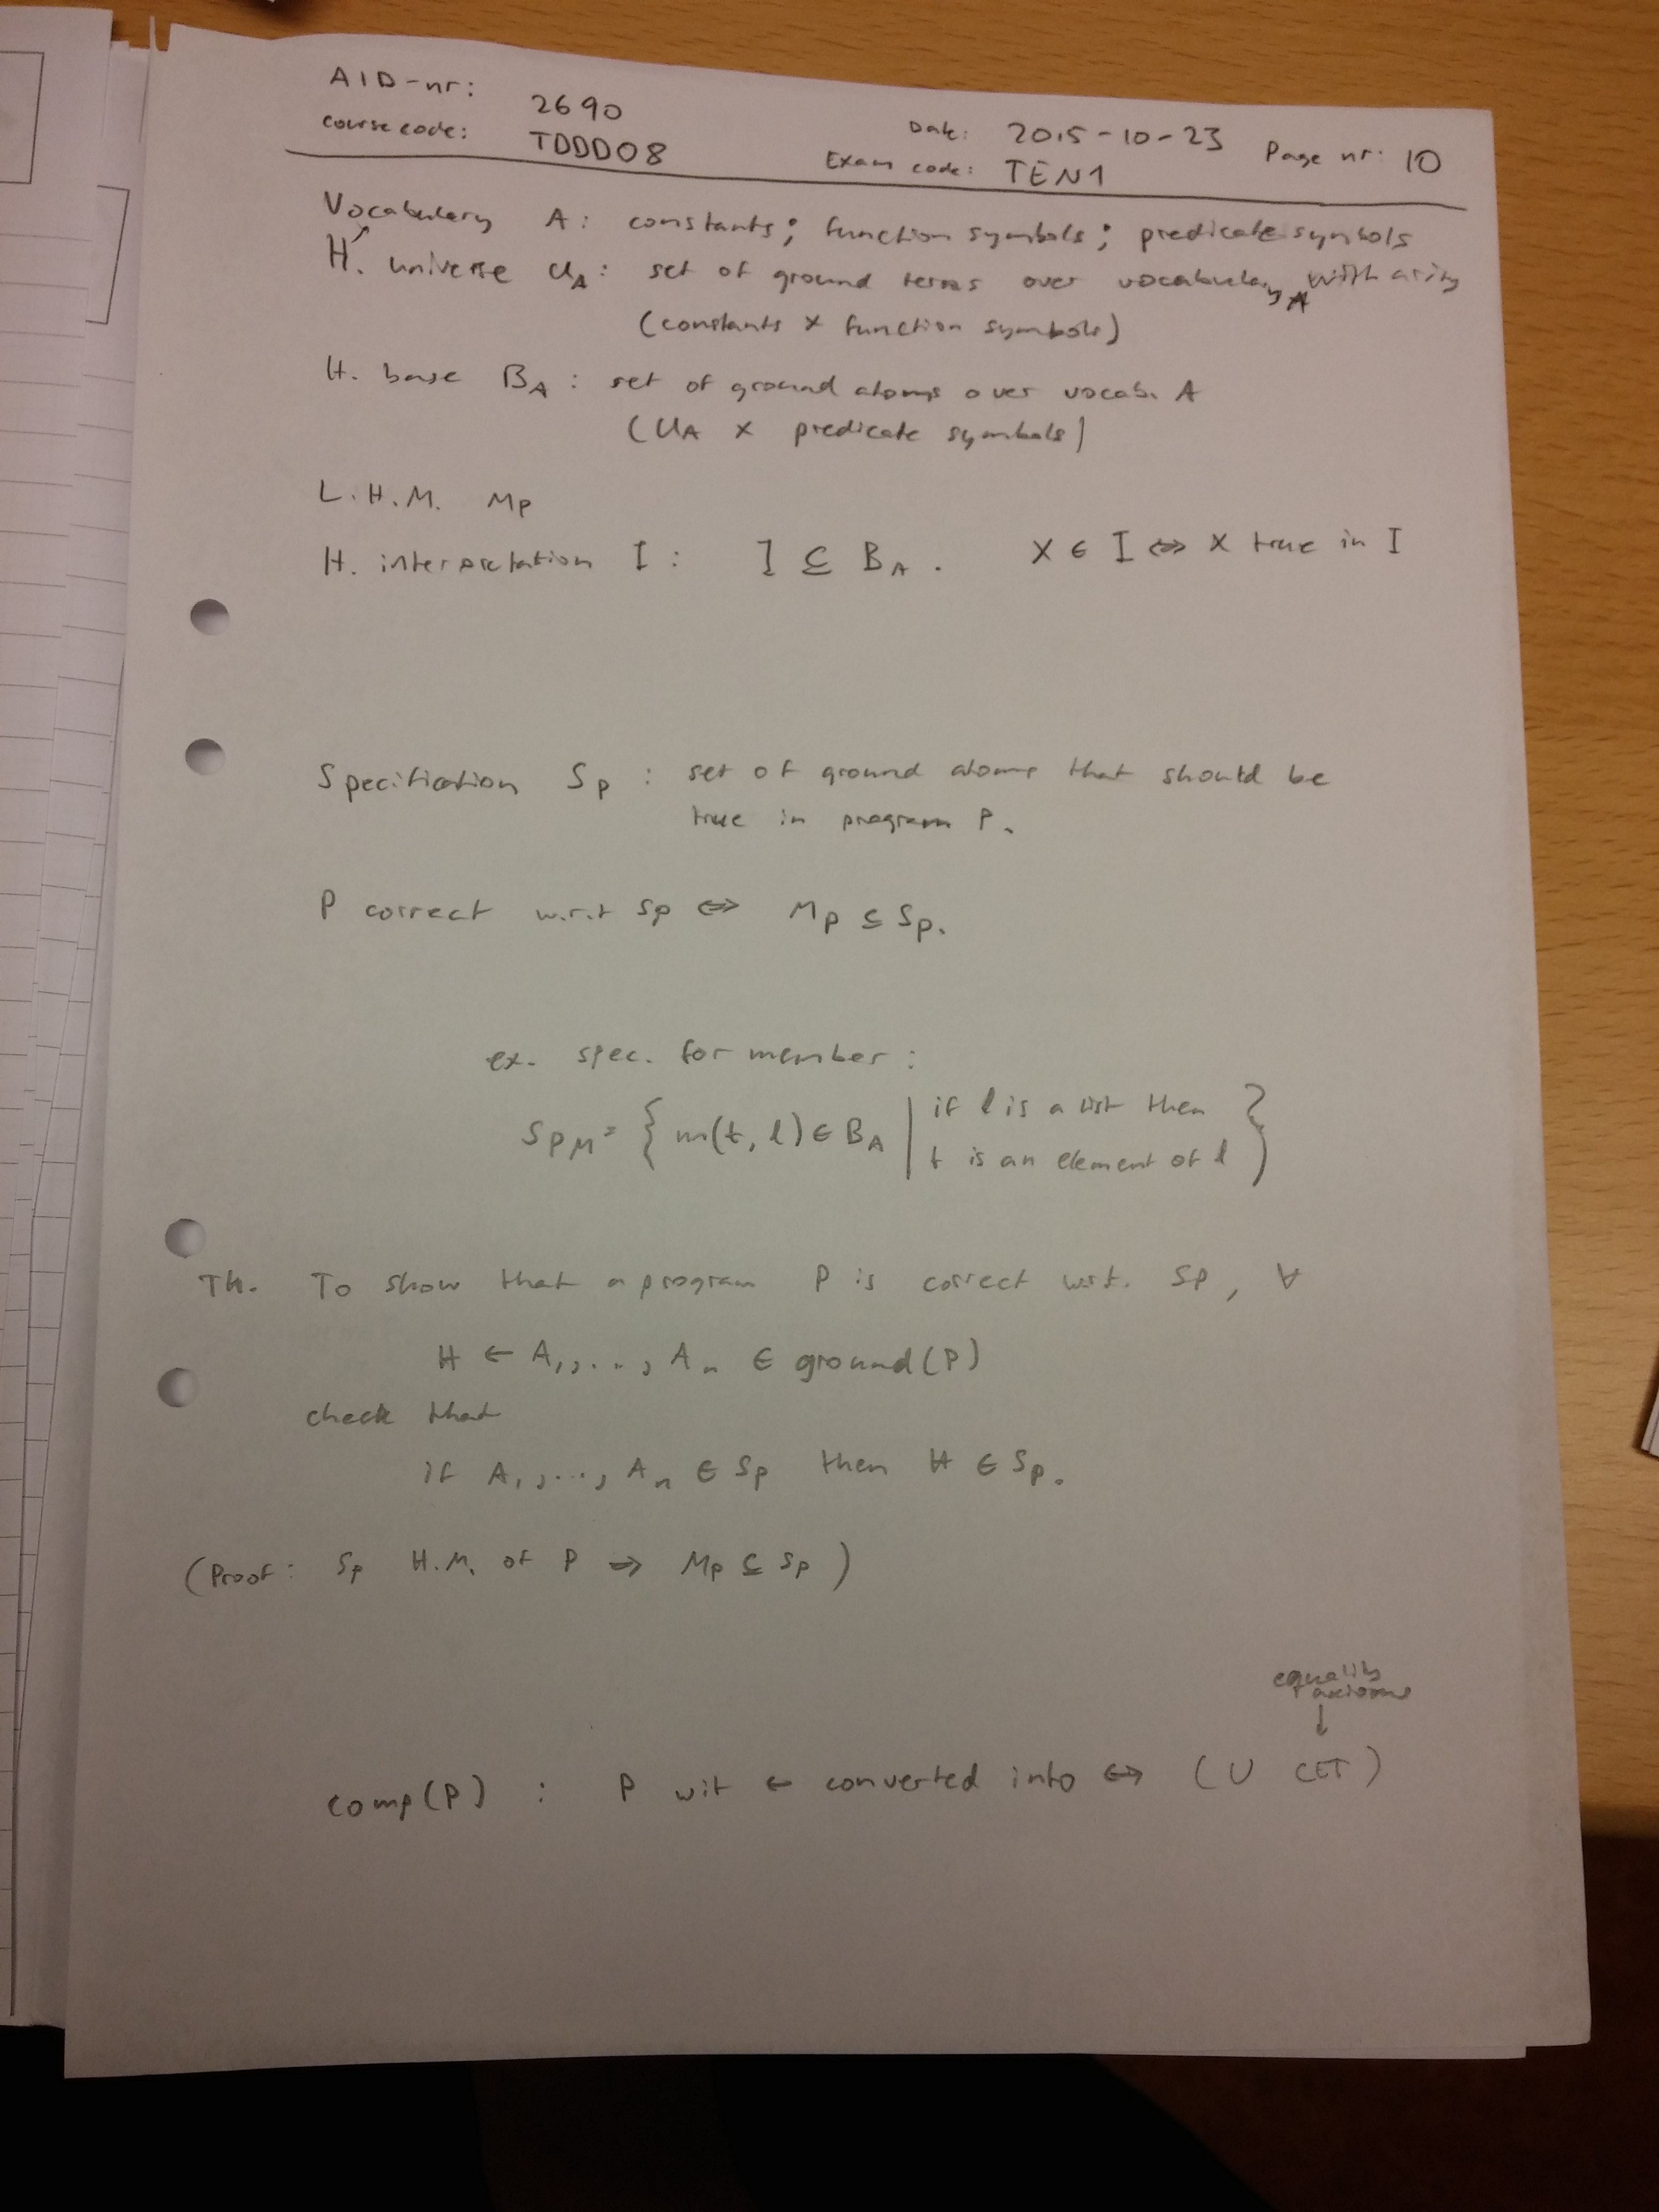 AID-nr: 2690
course code: TDDD08
Date: 2015-10-23
Exam code: TEN1
Page nr: 10
Vocabulary A: constants; function symbols; predicate symbols
with arity
H. universe U_A: set of ground terms over vocabulary A
(constants × function symbols)
H. base B_A: set of ground atoms over vocab. A
(U_A × predicate symbols)
L.H.M. Mp
H. interpretation I: I ⊆ B_A. X ∈ I ⇔ X true in I
Specification Sp: set of ground atoms that should be
true in program P.
P correct w.r.t Sp ⇔ Mp ⊆ Sp.
ex. spec. for member:
Sp_M = { m(t, l) ∈ B_A | if l is a list then
t is an element of l }
Th. To show that a program P is correct wrt. Sp, ∀
H ← A₁,..., Aₙ ∈ ground(P)
check that
if A₁,..., Aₙ ∈ Sp then H ∈ Sp.
(Proof: Sp H.M. of P ⇒ Mp ⊆ Sp)
equality
axioms
↓
comp(P): P wit ← converted into ↔ (∪ CET)